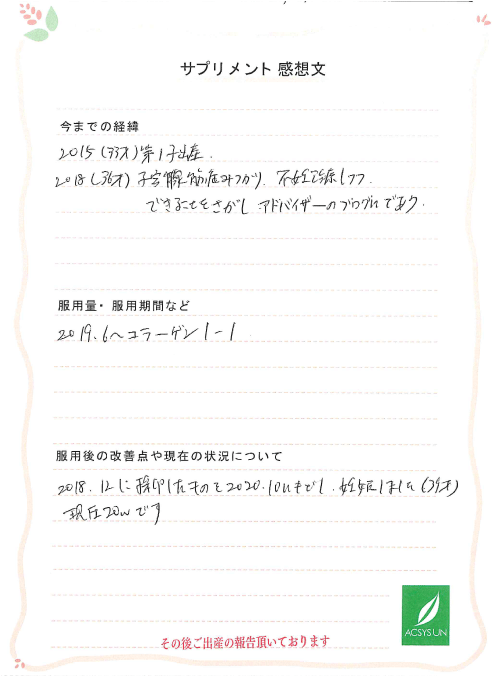 サプリメント 感想文
今までの経緯
2015 (33才) 第1子出産.
2018 (36才) 子宮腺筋症みつかり. 不妊治療しつつ
できることをさがし アドバイザーのブログにであう.
服用量・服用期間など
2019.6〜コラーゲン 1-1
服用後の改善点や現在の状況について
2018.12に採卵したものを2020.10にもどし.妊娠しました(39才)
現在20wです
その後ご出産の報告頂いております
ACSYSUN